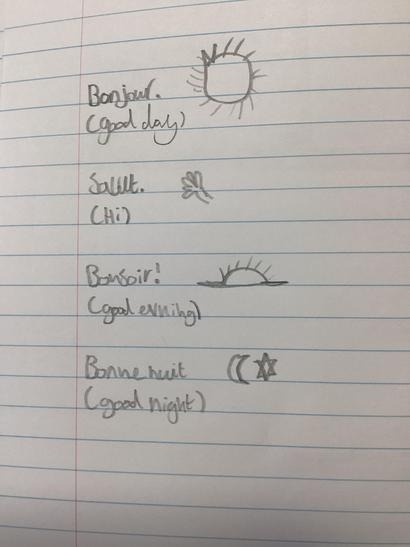 Bonjour.
(good day)
Salut.
(Hi)
Bonsoir!
(good evning)
Bonne nuit
(good night)